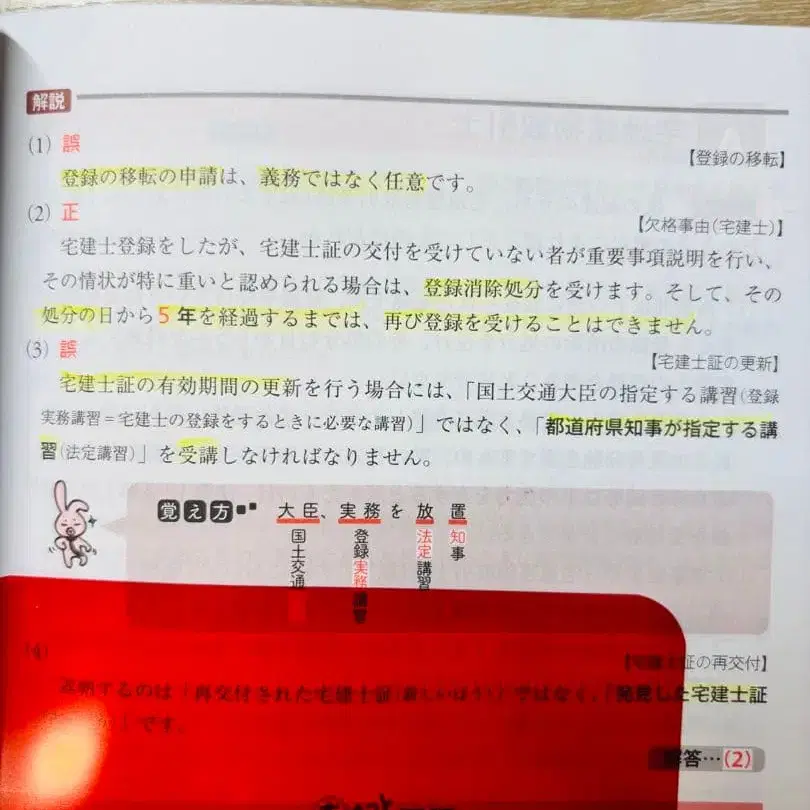 解説
(1) 誤
【登録の移転】
登録の移転の申請は、義務ではなく任意です。
(2) 正
【欠格事由(宅建士)】
宅建士登録をしたが、宅建士証の交付を受けていない者が重要事項説明を行い、
その情状が特に重いと認められる場合は、登録消除処分を受けます。そして、その
処分の日から5年を経過するまでは、再び登録を受けることはできません。
(3) 誤
【宅建士証の更新】
宅建士証の有効期間の更新を行う場合には、「国土交通大臣の指定する講習(登録
実務講習=宅建士の登録をするときに必要な講習)」ではなく、「都道府県知事が指定する講
習(法定講習)」を受講しなければなりません。
覚え方
大臣、実務を放置
国土交通
登録実務講習
法定講習
知事
(4)
【宅建士証の再交付】
返納するのは「再交付された宅建士証(新しいほう)」ではなく、「発見した宅建士証
です。
解答…(2)